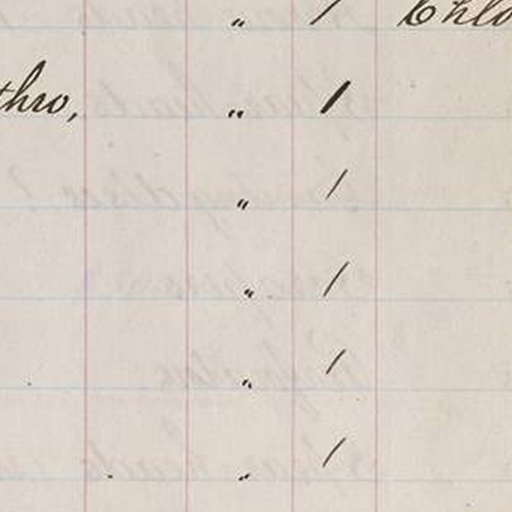 „ / Chlo
thro, „ /
„ /
„ /
„ /
„ /